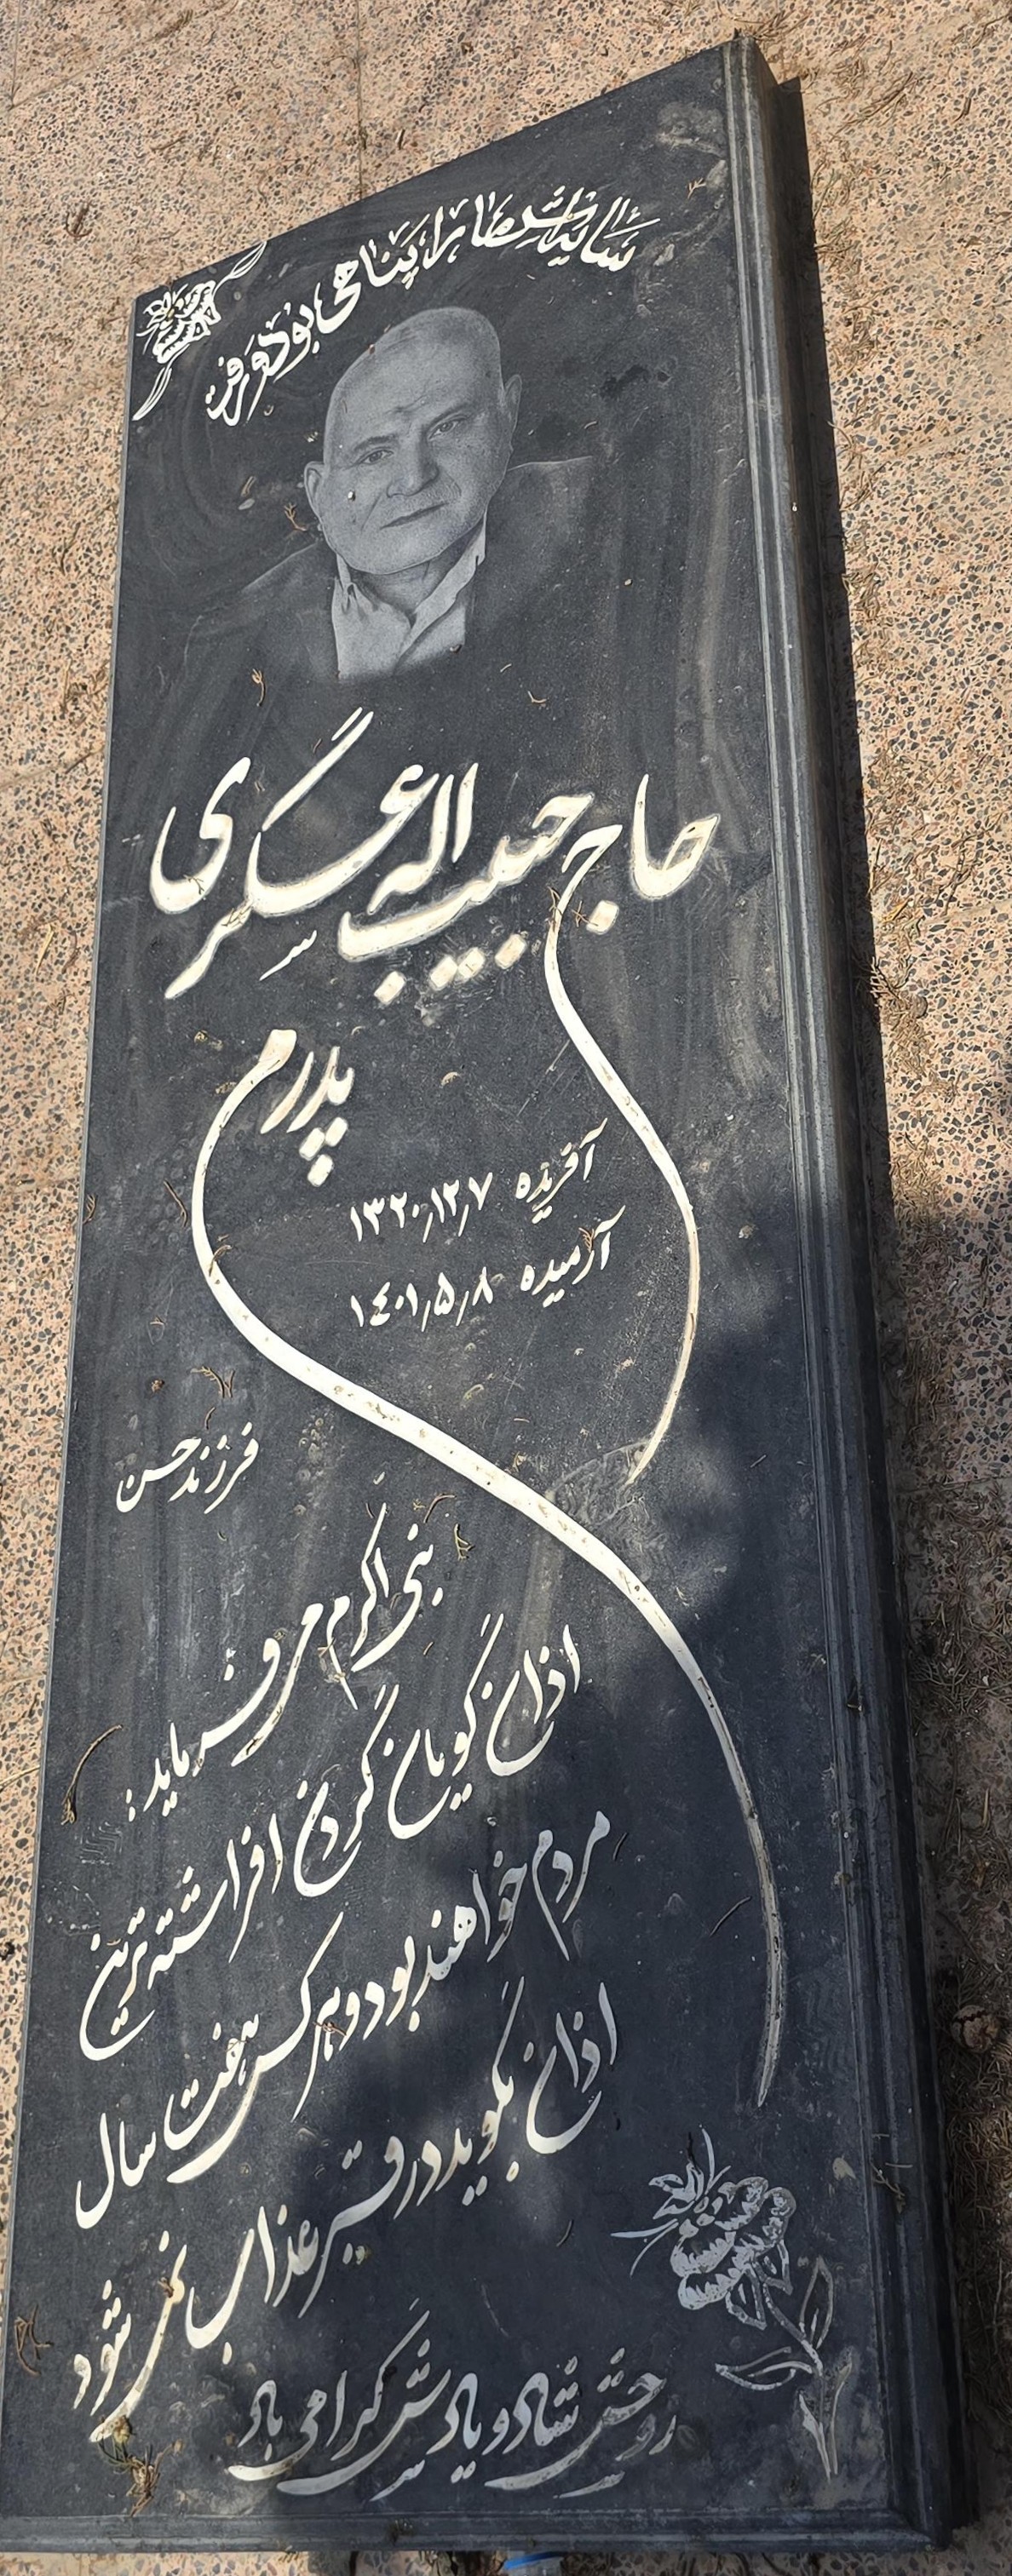 سایه اش ما را پناهی بود و رفت
حاج حبیب اله عسگری
پدرم
آفریده ۱۳۲۰٫۱۲٫۷
آرمیده ۱۴۰۱٫۵٫۸
فرزند حسن
نبی اکرم می فرماید:
اذان گویان گردن افراشته ترین
مردم خواهند بود و هر کس هفت سال
اذان بگوید در قبر عذاب نمی شود
روحش شاد و یادش گرامی باد